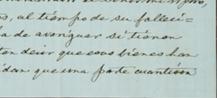 , al tiempo de su falleci-
a de averiguar si tienen
decir que esos bienes han
que una parte cuantiosa